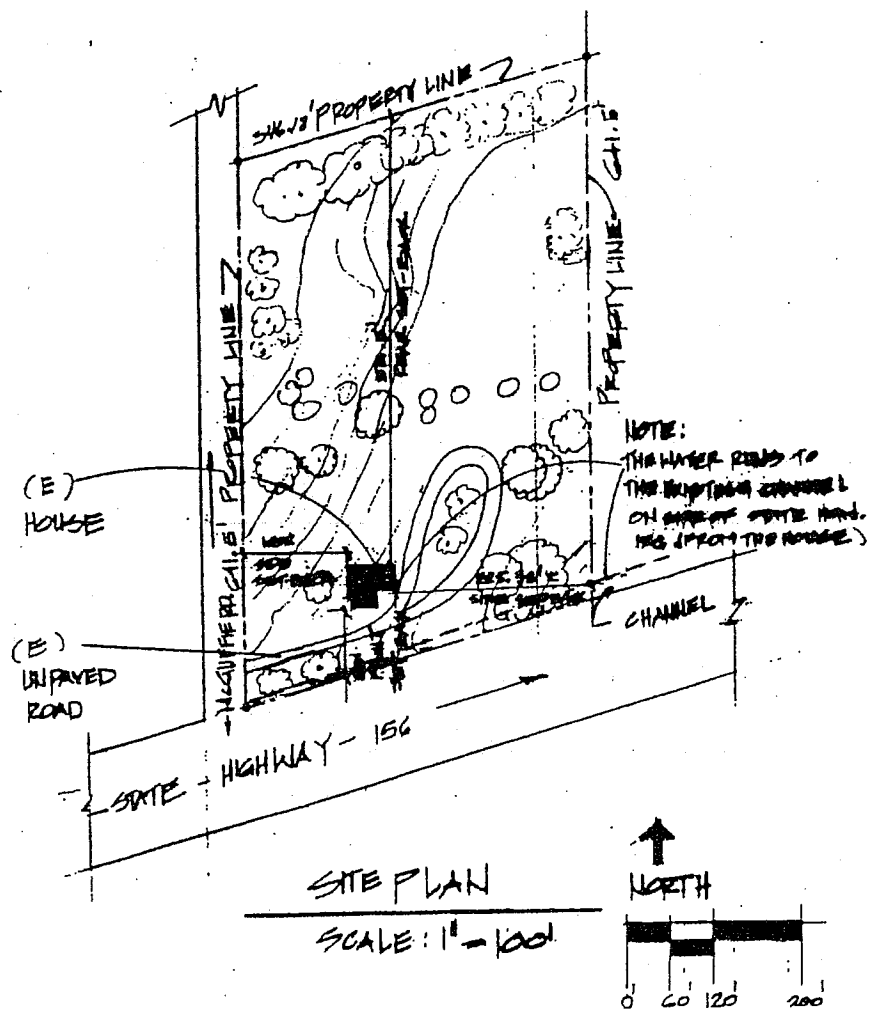 PROPERTY LINE
PROPERTY LINE
PROPERTY LINE
REAR SET-BACK
(E)
HOUSE
NOTE:
THE WATER RUNS TO
THE EXISTING CHANNEL
ON SIDE OF STATE
(FROM THE HOUSE)
SIDE
SET-BACK
CHANNEL
(E)
UNPAVED
ROAD
STATE - HIGHWAY - 156
SITE PLAN
SCALE: 1" = 100'
NORTH
0' 60' 120' 200'